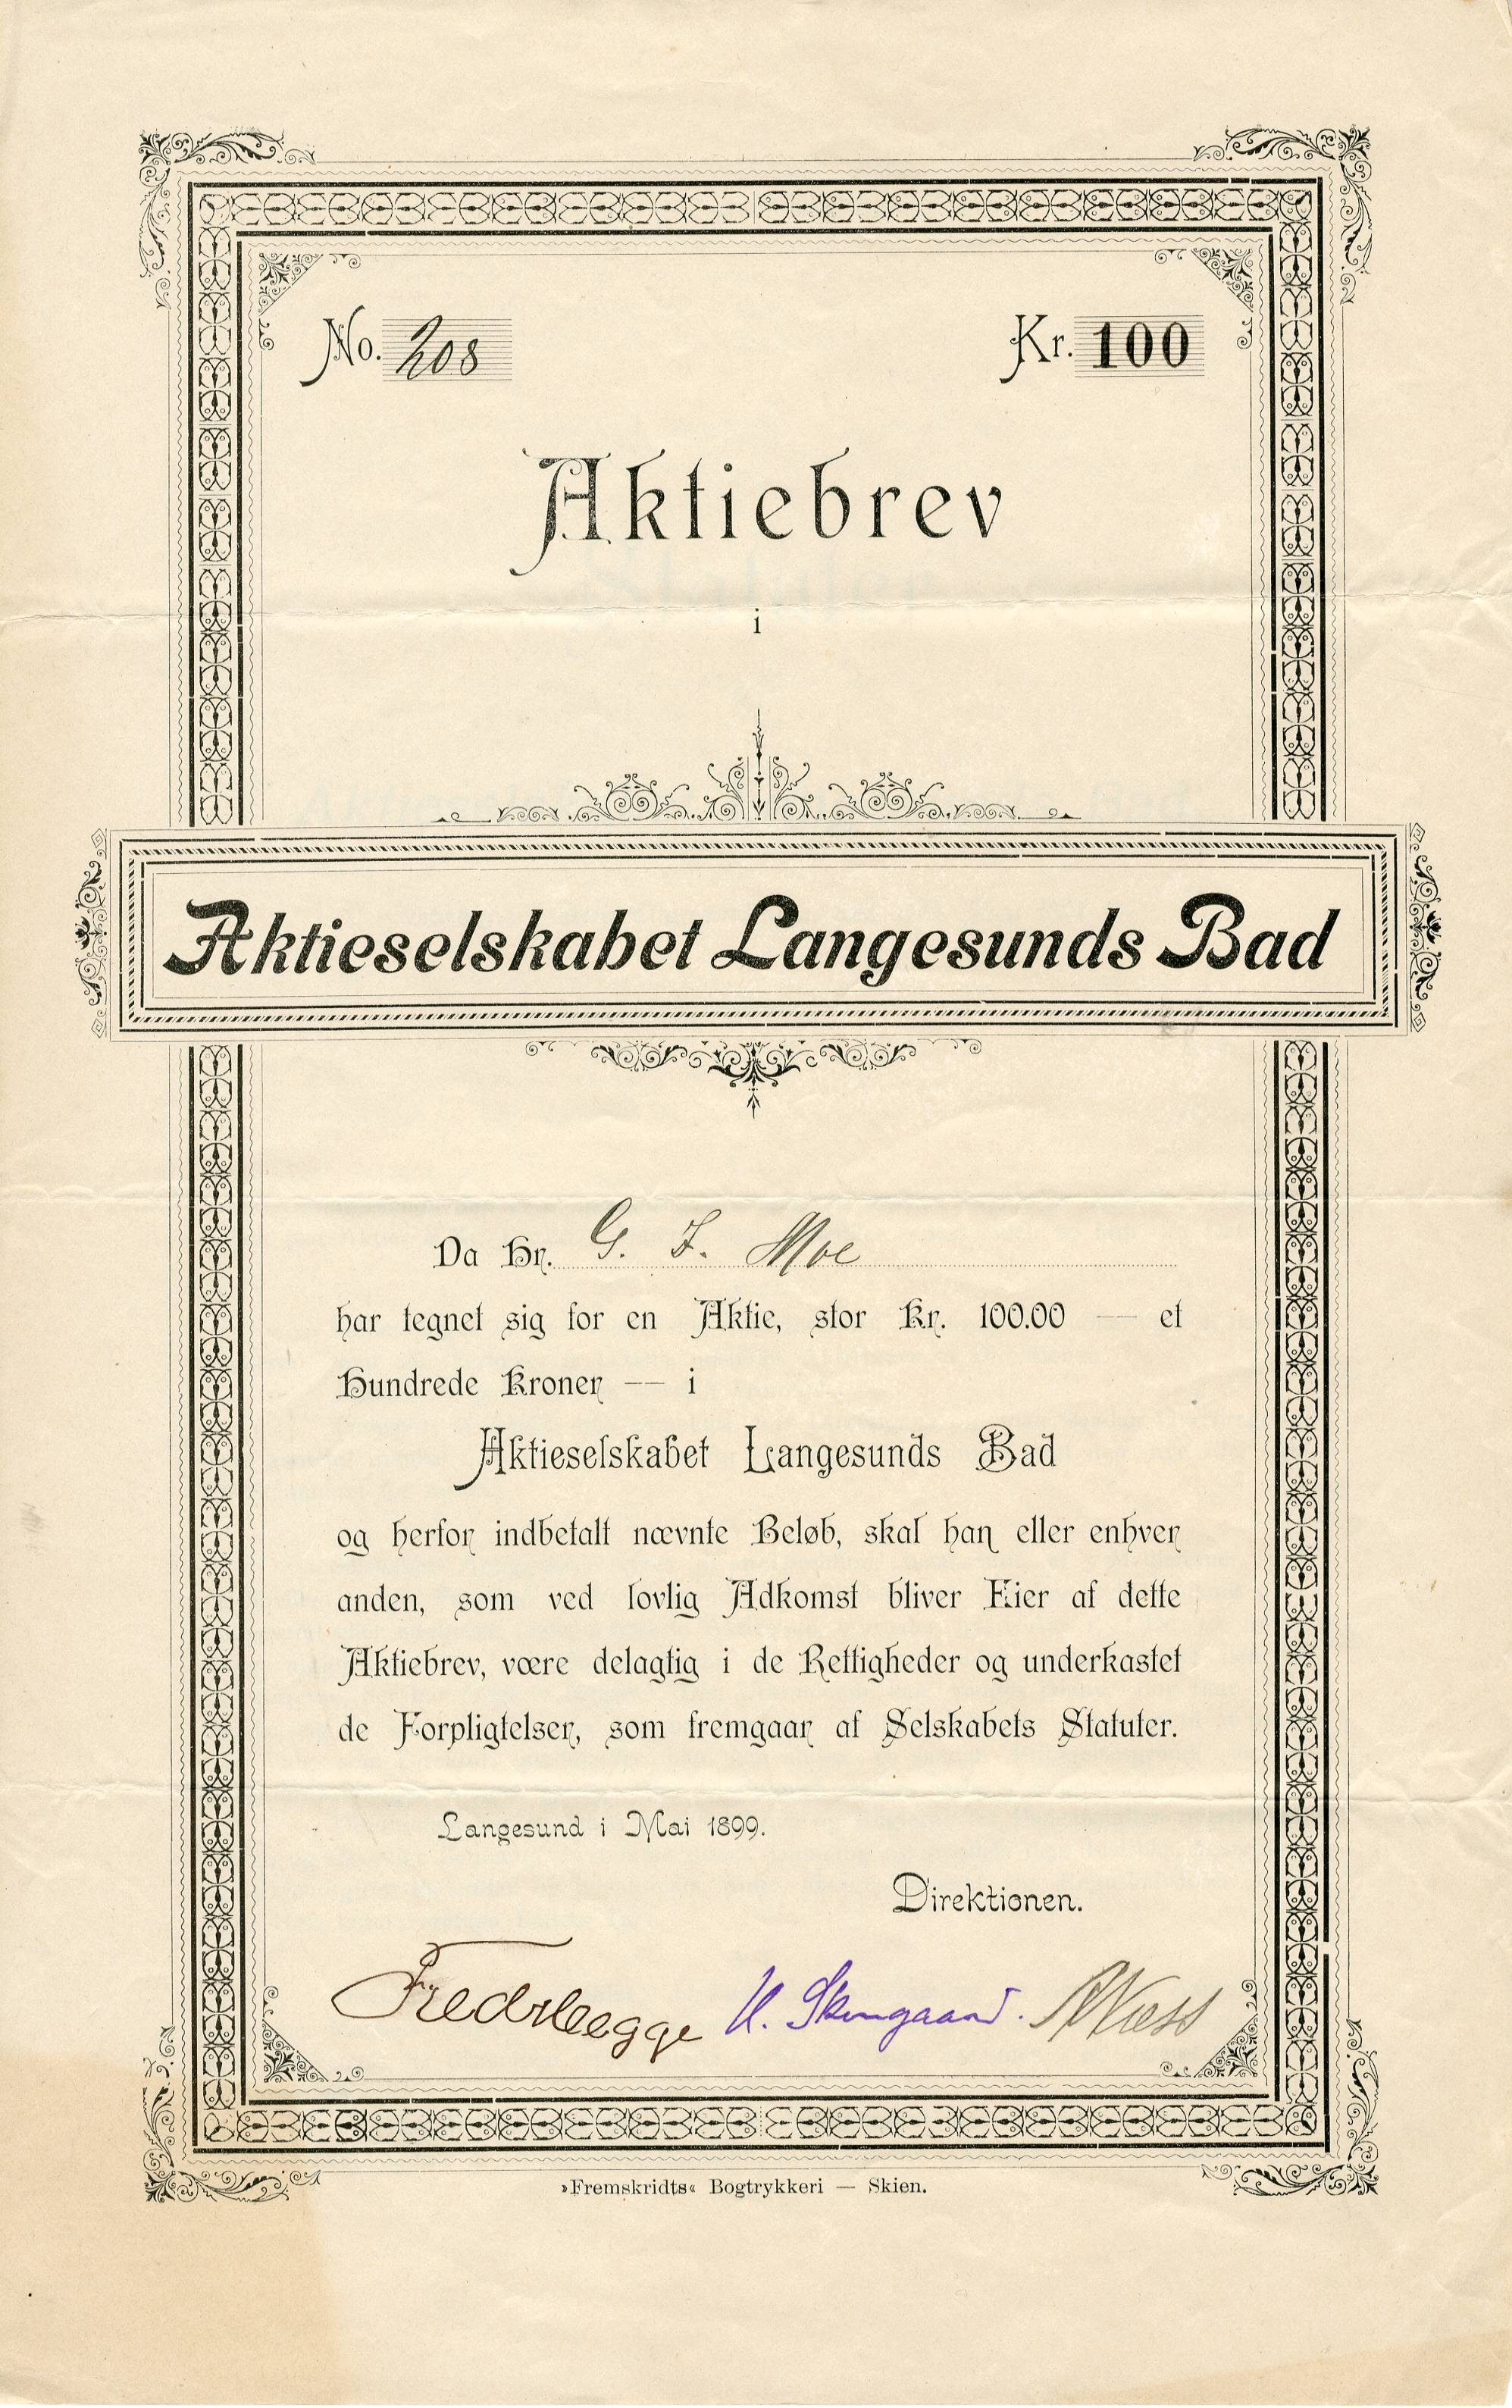 No. 208
Kr. 100
Aktiebrev
i
Aktieselskabet Langesunds Bad
Da Hr. G. F. Moe
har tegnet sig for en Aktie, stor Kr. 100.00 — et
Hundrede Kroner — i
Aktieselskabet Langesunds Bad
og herfor indbetalt nævnte Beløb, skal han eller enhver
anden, som ved lovlig Adkomst bliver Eier af dette
Aktiebrev, være delagtig i de Rettigheder og underkastet
de Forpligtelser, som fremgaar af Selskabets Statuter.
Langesund i Mai 1899.
Direktionen.
»Fremskridts« Bogtrykkeri — Skien.